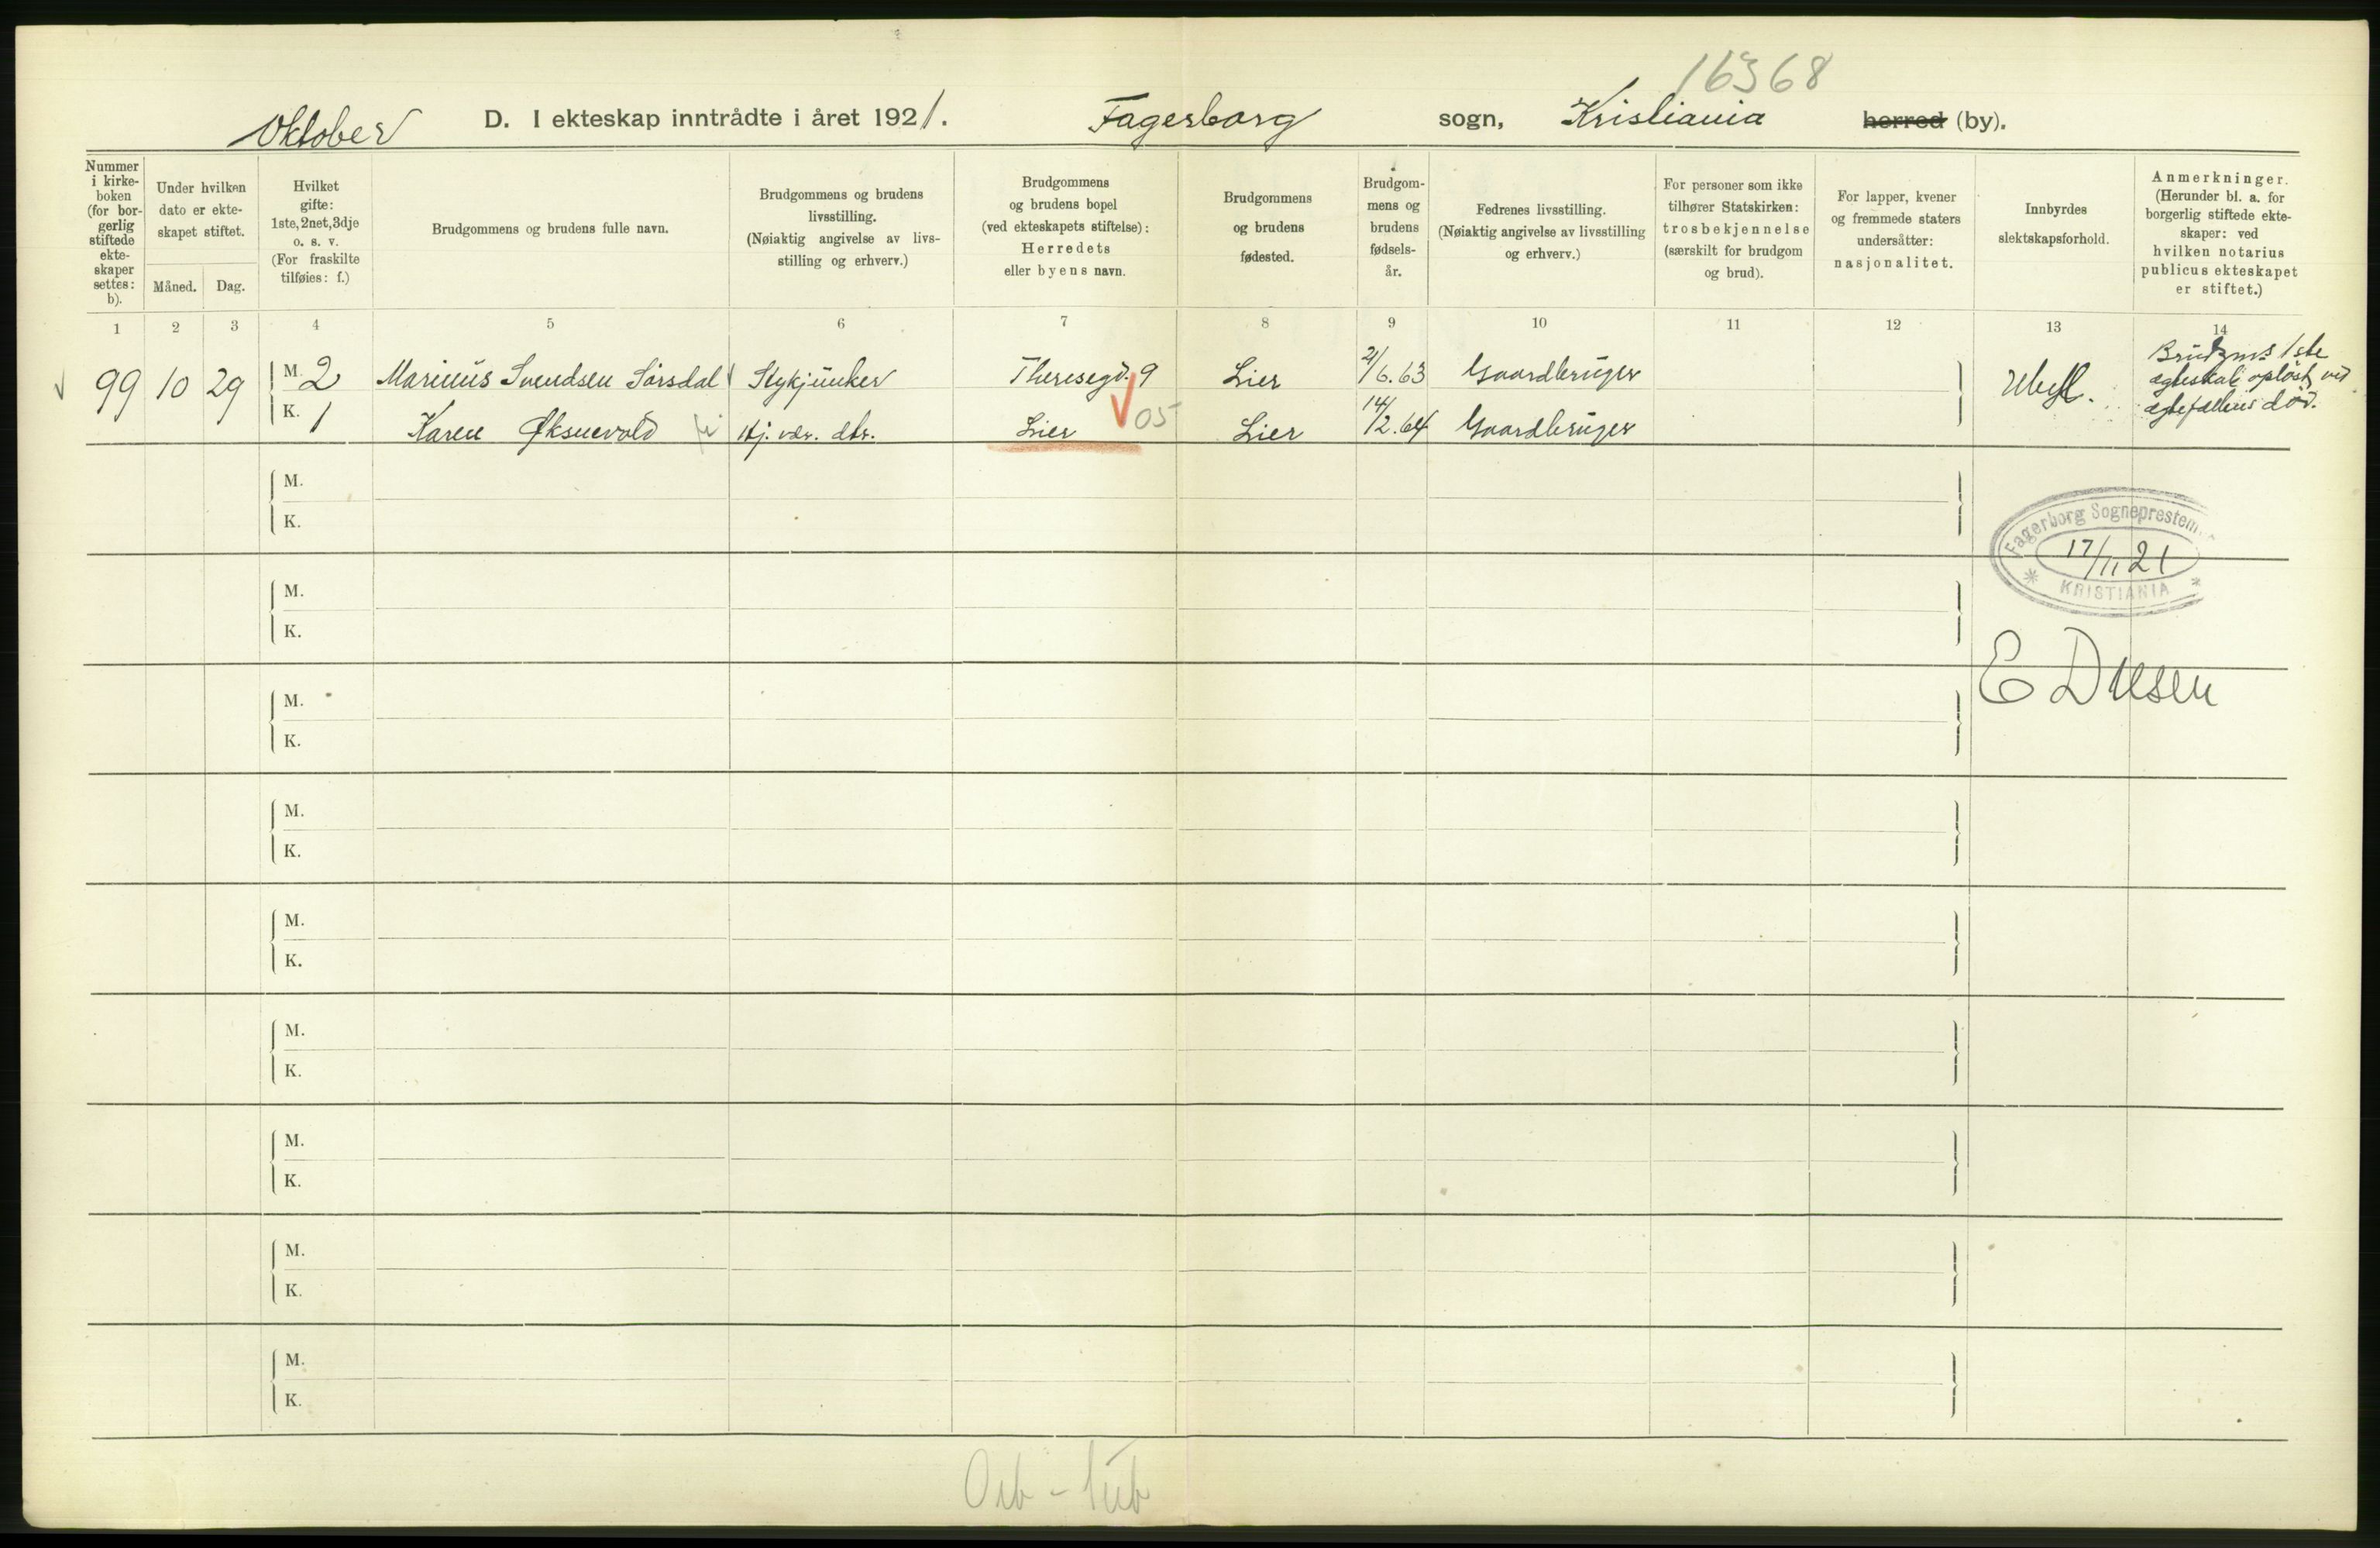 16368
Oktober D. I ekteskap inntrådte i året 1921. Fagerborg sogn, Kristiania herred (by).
Nummer i kirke-boken (for bor-gerlig stiftede ekte-skaper settes: b).
Under hvilken dato er ekte-skapet stiftet.
Måned. Dag.
Hvilket gifte: 1ste, 2net, 3dje o. s. v. (For fraskilte tilføies: f.)
Brudgommens og brudens fulle navn.
Brudgommens og brudens livsstilling. (Nøiaktig angivelse av livs-stilling og erhverv.)
Brudgommens og brudens bopel (ved ekteskapets stiftelse): Herredets eller byens navn.
Brudgommens og brudens fødested.
Brudgom-mens og brudens fødsels-år.
Fedrenes livsstilling. (Nøiaktig angivelse av livsstilling og erhverv.)
For personer som ikke tilhører Statskirken: trosbekjennelse (særskilt for brudgom og brud).
For lapper, kvener og fremmede staters undersåtter: nasjonalitet.
Innbyrdes slektskapsforhold.
Anmerkninger. (Herunder bl. a. for borgerlig stiftede ekte-skaper: ved hvilken notarius publicus ekteskapet er stiftet.)
1 2 3 4 5 6 7 8 9 10 11 12 13 14
99 10 29 M. 2 Marinius Svendsen Sørsdal Stykjunker Theresegd. 9 Lier 21/6.63 Gaardbruger Ubesl. Brudgms 1ste
ægteskab opløst ved
ægtefællens død.
K. 1 Karen Øksnevold Hj. vær. dtr. Lier 05 Lier 14/2.64 Gaardbruger
M.
K.
Fagerborg Sogneprestem
17/11 21
KRISTIANIA
M.
K.
E Duesen
M.
K.
M.
K.
M.
K.
M.
K.
M.
K.
M.
K.
M.
K.